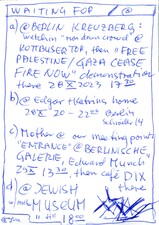 WAITING FOR
a) @ BERLIN KREUZBERG:
watchin "non demo crowd" @
KOTTBUSER TOR, then "FREE
PALESTINE/GAZA CEASE
FIRE NOW" demonstration
there 28 X 2023 17 30
b) @ Edgar + Katrins home
28 X 20 - 22 00 Berlin
c) Mother @ our meeting point
"ENTRANCE" @ BERLINISCHE
GALERIE, Edvard Munch
29 X 13 30, then café DIX
there
d) @ JEWISH
MUSEUM
18 00